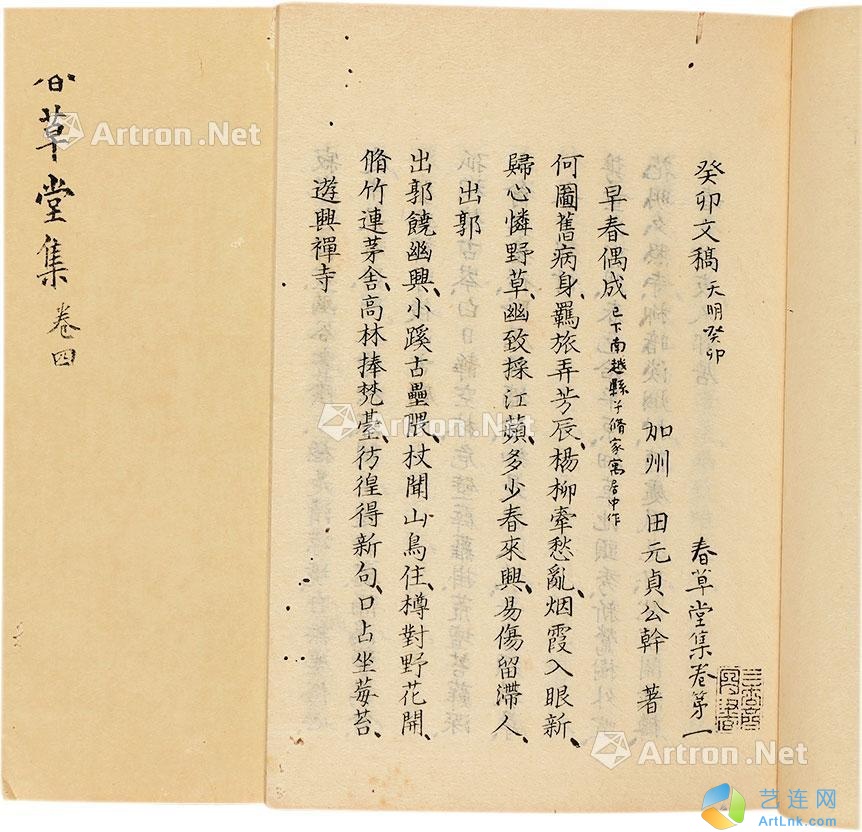 癸卯文稿 天明癸卯 春草堂集卷第一
加州 田元貞公幹 著
早春偶成 已下南越縣子脩家寓居中作
何圖舊病身、羈旅弄芳辰、楊柳牽愁亂、烟霞入眼新、
歸心憐野草、幽致採江蘋、多少春來興、易傷留滯人、
出郭
出郭饒幽興、小蹊古壘隈、杖聞山鳥住、樽對野花開、
脩竹連茅舍、高林捧梵臺、彷徨得新句、口占坐莓苔、
遊興禪寺
草堂集 卷四
Artron.Net
Artron.Net
Artron.Net
Artron.Net
艺连网
ArtLnk.com